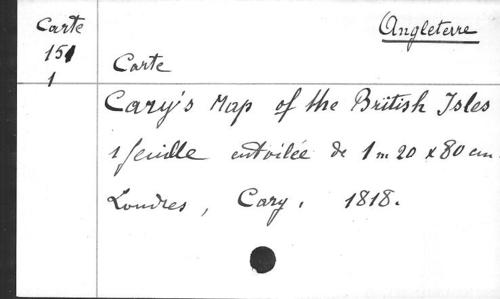 Carte
151
1
Angleterre
Carte
Cary's Map of the British Isles
1 feuille entoilée de 1m20 x 80 cm.
Londres, Cary, 1818.